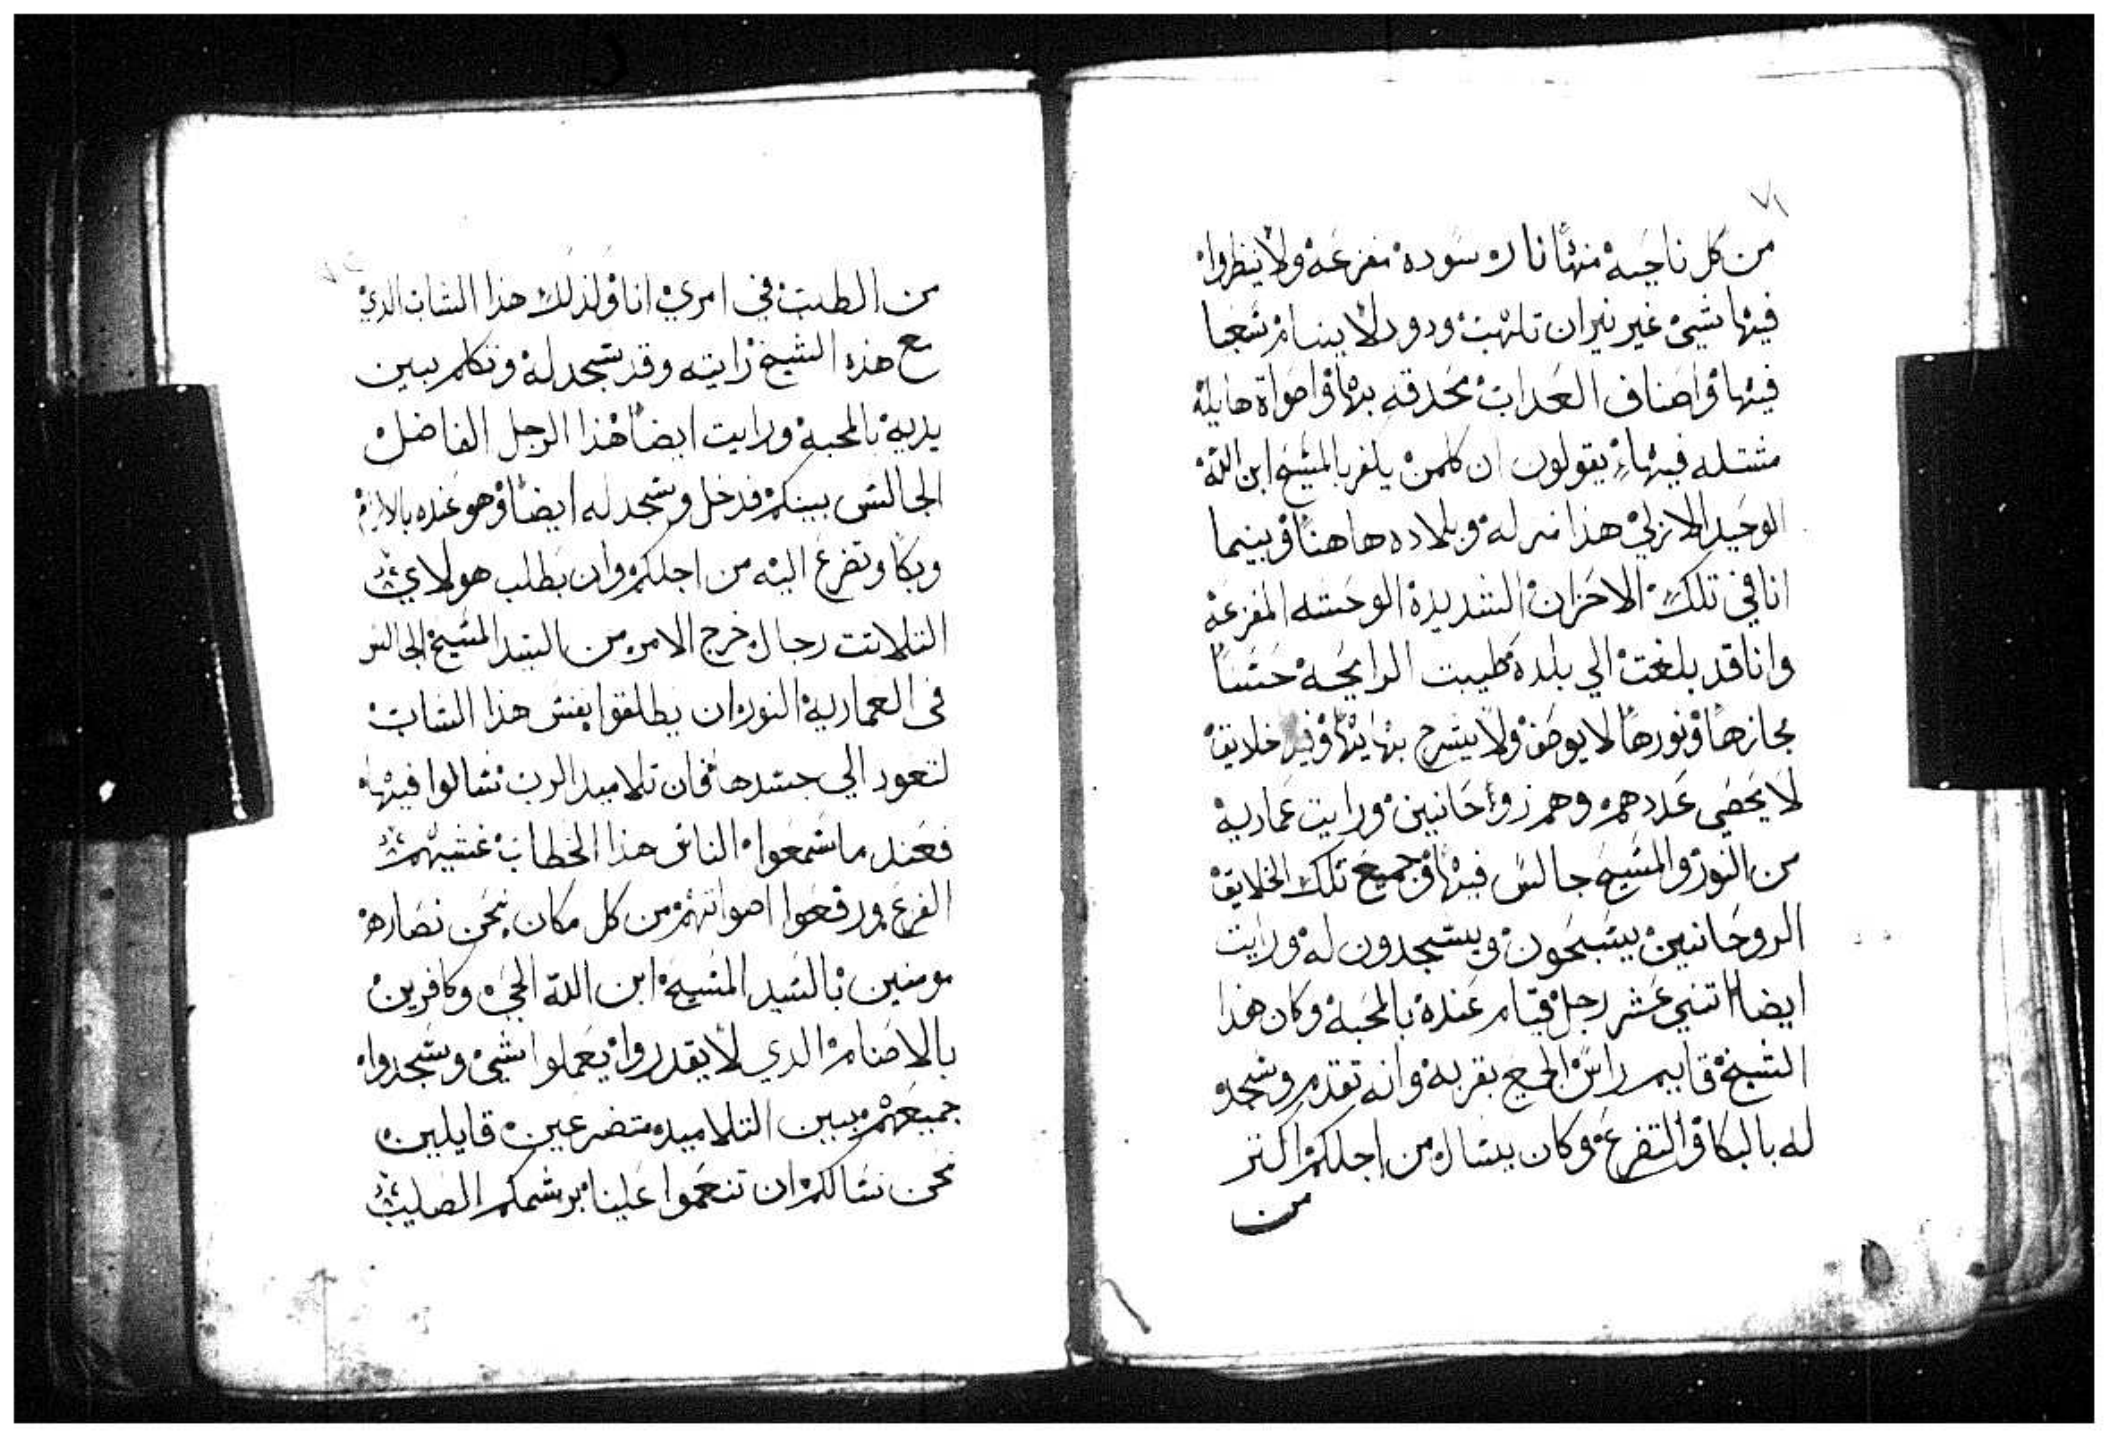 ٧١
من كل ناحيه منها نار سوده مفزعه ولا ينظروا
فيها شي غير نيران تلهب ودود لا ينام شعبا
فيها واصناف العداب محدقه بها واصواة هايله
مشتله فيها يقولون ان كلمن يكفر بالمسيح ابن الله
الوحيد الازلي هذا منزله وبلاده هاهنا وبينما
انا في تلك الاحزان الشديدة الوحشه المفزعه
وانا قد بلغت الي بلدة طيبت الرايحه حسنا
مجازها ونورها لا يوصف ولا يشرح بنهايتها خلايق
لا يحصي عددهم وهم روحانيين ورايت عماريه
من النور والمسيح جالس فيها وجميع تلك الخلايق
الروحانيين يسبحون ويسجدون له ورايت
ايضا اتني عشر رجل قيام عنده بالمحبه وكان هذا
الشيخ قايم راس الجمع بقربه وانه تقدم وسجد
له بالبكا والتضرع وكان يسال من اجلكم اكتر
من
من الطلب في امري انا ولذلك هذا الشاب الدي
مع هذه الشيخ رايته وقد سجد له وتكلم بين
يديه بالمحبه ورايت ايضا هذا الرجل الفاضل
الجالس بينكم فدخل وسجد له ايضا وهو عنده
وبكا وتضرع اليه من اجلكم وان بطلب هولاي
التلاتت رجال خرج الامر من السيد المسيح الجالس
في العماريه النور ان يطلقوا بنفس هذا الشاب
لتعود الي جسدها فان تلاميد الرب سالوا فيها
فعند ما سمعوا الناس هذا الخطاب غشيهم
الفزع ورفعوا اصواتهم من كل مكان نحن نصاره
مومنين بالسيد المسيح ابن الله الحي وكافرين
بالاصنام الدي لا يقدروا يعملوا شي وسجدوا
جميعهم بين التلاميد متضرعين قايلين
نحن نسالكم ان تنعموا علينا برشمكم الصليب